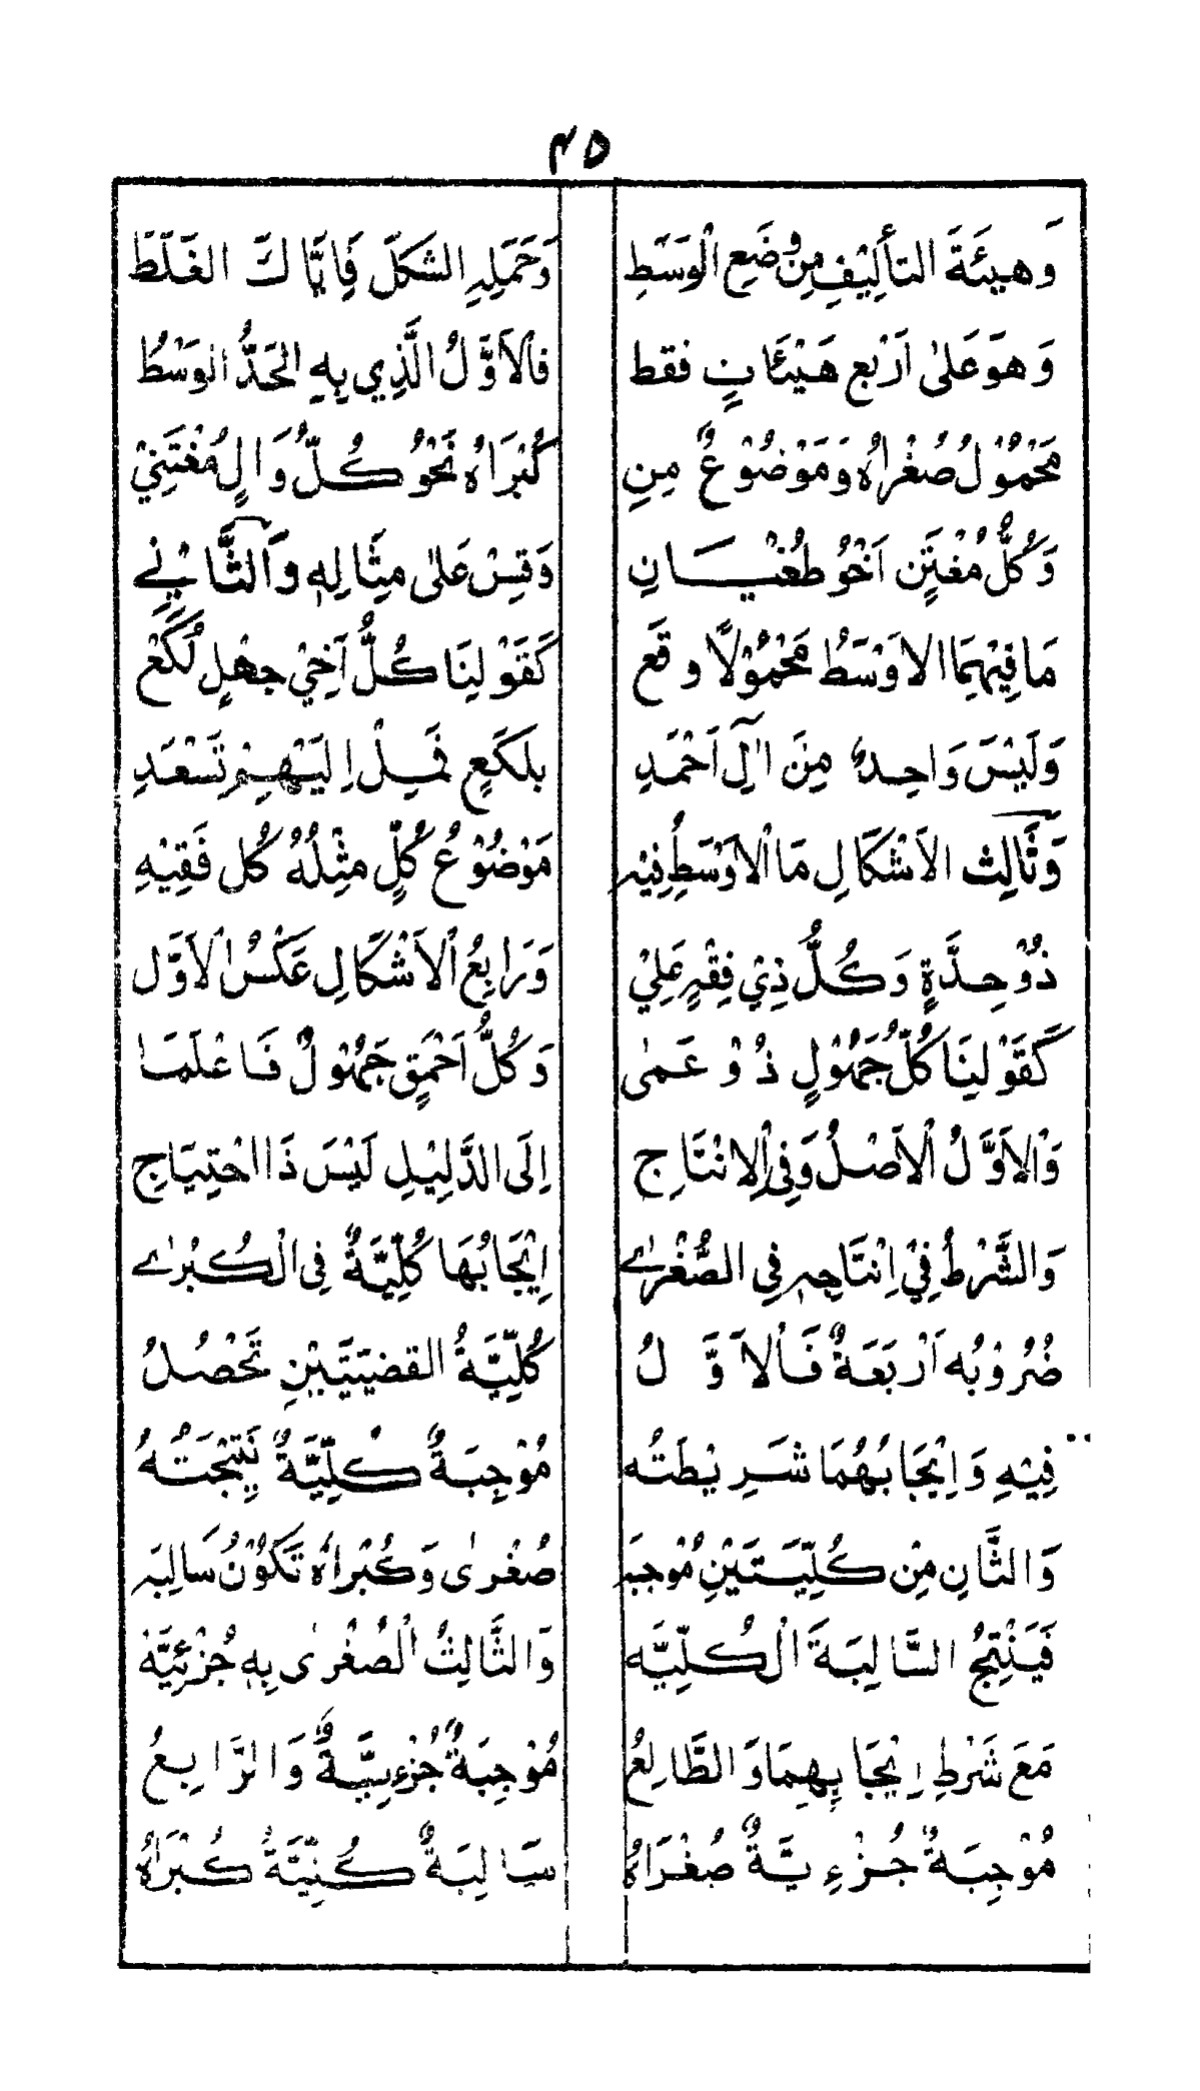 ٤٥
وَهيئَةَ التأليْفِ مِن وضَعِ الْوَسَطِ وَحَملِهِ الشَكلَ فَإيَّاكَ الغَلَطَ
وَهوَ عَلىٰ اَرْبع هَيْئَاتٍ فقط فالْاَوَّلُ الَّذِي بِهِ الحَدُّ الوَسْطُ
مَحْمُوْلُ صُغْراهُ وَمَوْضُوْعٌ مِنِ كُبْرَاهُ نَحْوُ كُلُّ وَالٍ مُغْتَنِيْ
وَكُلُّ مُغْتَنٍ اَخُوْ طُغْيَانِ وَقِسْ عَلىٰ مِثَالِهِ وَالثَّانِيْ
مَا فِيْهِمَا الاوْسَطُ مَحْمُوْلًا وقَع كَقَوْلِنَا كُلُّ اَخِيْ جهْلٍ لُكَعْ
وَلَيْسَ وَاحِدٌ مِنَ اٰلِ اَحْمَدِ بلكَعٍ فَمِلْ اِلَيْهِمْ تَسْعَدِ
وَثَالِث الاَشْكَالِ مَا الْاَوْسَطُ فِيْهِ مَوْضُوْعُ كُلٍّ مثِلُهُ كُل فَقِيْهِ
ذُوْ حِدَّةٍ وَكُلُّ ذِيْ فِقْهٍ عَلِيْ وَرَابِعُ الْاَشْكَالِ عَكْسُ الْاَوَّل
كَقَوْلِنَا كُلُّ جَهُوْلٍ ذُوْ عَمٰى وَكُلُّ اَحْمَقٍ جَهُوْلٌ فَاعْلَمَا
وَالْاَوَّلُ الْاَصْلُ وَفِي الْاِنْتَاجِ اِلَى الدَّلِيْلِ لَيْسَ ذَا احْتِيَاجِ
وَالشَّرْطُ فِيْ اِنْتَاجِهِ فِي الصُّغْرٰے اِيْجَابُهَا كُلِّيَّةٌ فِي الْكُبْرٰے
ضُرُوْبُه اَرْبَعَةٌ فَالْاَوَّلُ كُلِّيَّةُ القضِيَّتَيْنِ تَحْصُلُ
فِيْهِ وَاِيْجَابُهُمَا شَرِيْطَتُه مُوْجِبَةٌ كُلِّيَّةٌ نَتِيْجَتُهُ
وَالثَّانِ مِنْ كُلِّيَّتَيْنِ مُوْجبَه صُغْرىٰ وَكُبْراهُ تَكُوْنُ سَالِبَه
فَيَنْتِجُ السَّالِبَةَ الْكُلِّيَّه وَالثَّالِثُ الْصُغْرىٰ بِهِ جُزْئِيَّهْ
مَعَ شَرْطِ اِيْجَابِهِمَا وَالطَّالِعُ مُوْجِبَةٌ جُزْءِيَّةٌ وَالرَّابِعُ
مُوْجِبَةٌ جُزْءِيَّةٌ صُغْرَاهُ سَالِبَةٌ كُلِّيَّةٌ كُبْرَاهُ